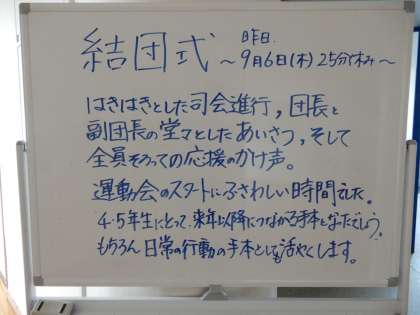 結団式
昨日.
～9月6日(木)25分休み～
はきはきとした司会進行，団長と
副団長の堂々としたあいさつ，そして
全員そろっての応援のかけ声。
運動会のスタートにふさわしい時間でした。
4・5年生にとって、来年以降につながる手本となったでしょう。
もちろん日常の行動の手本としても活やくします。